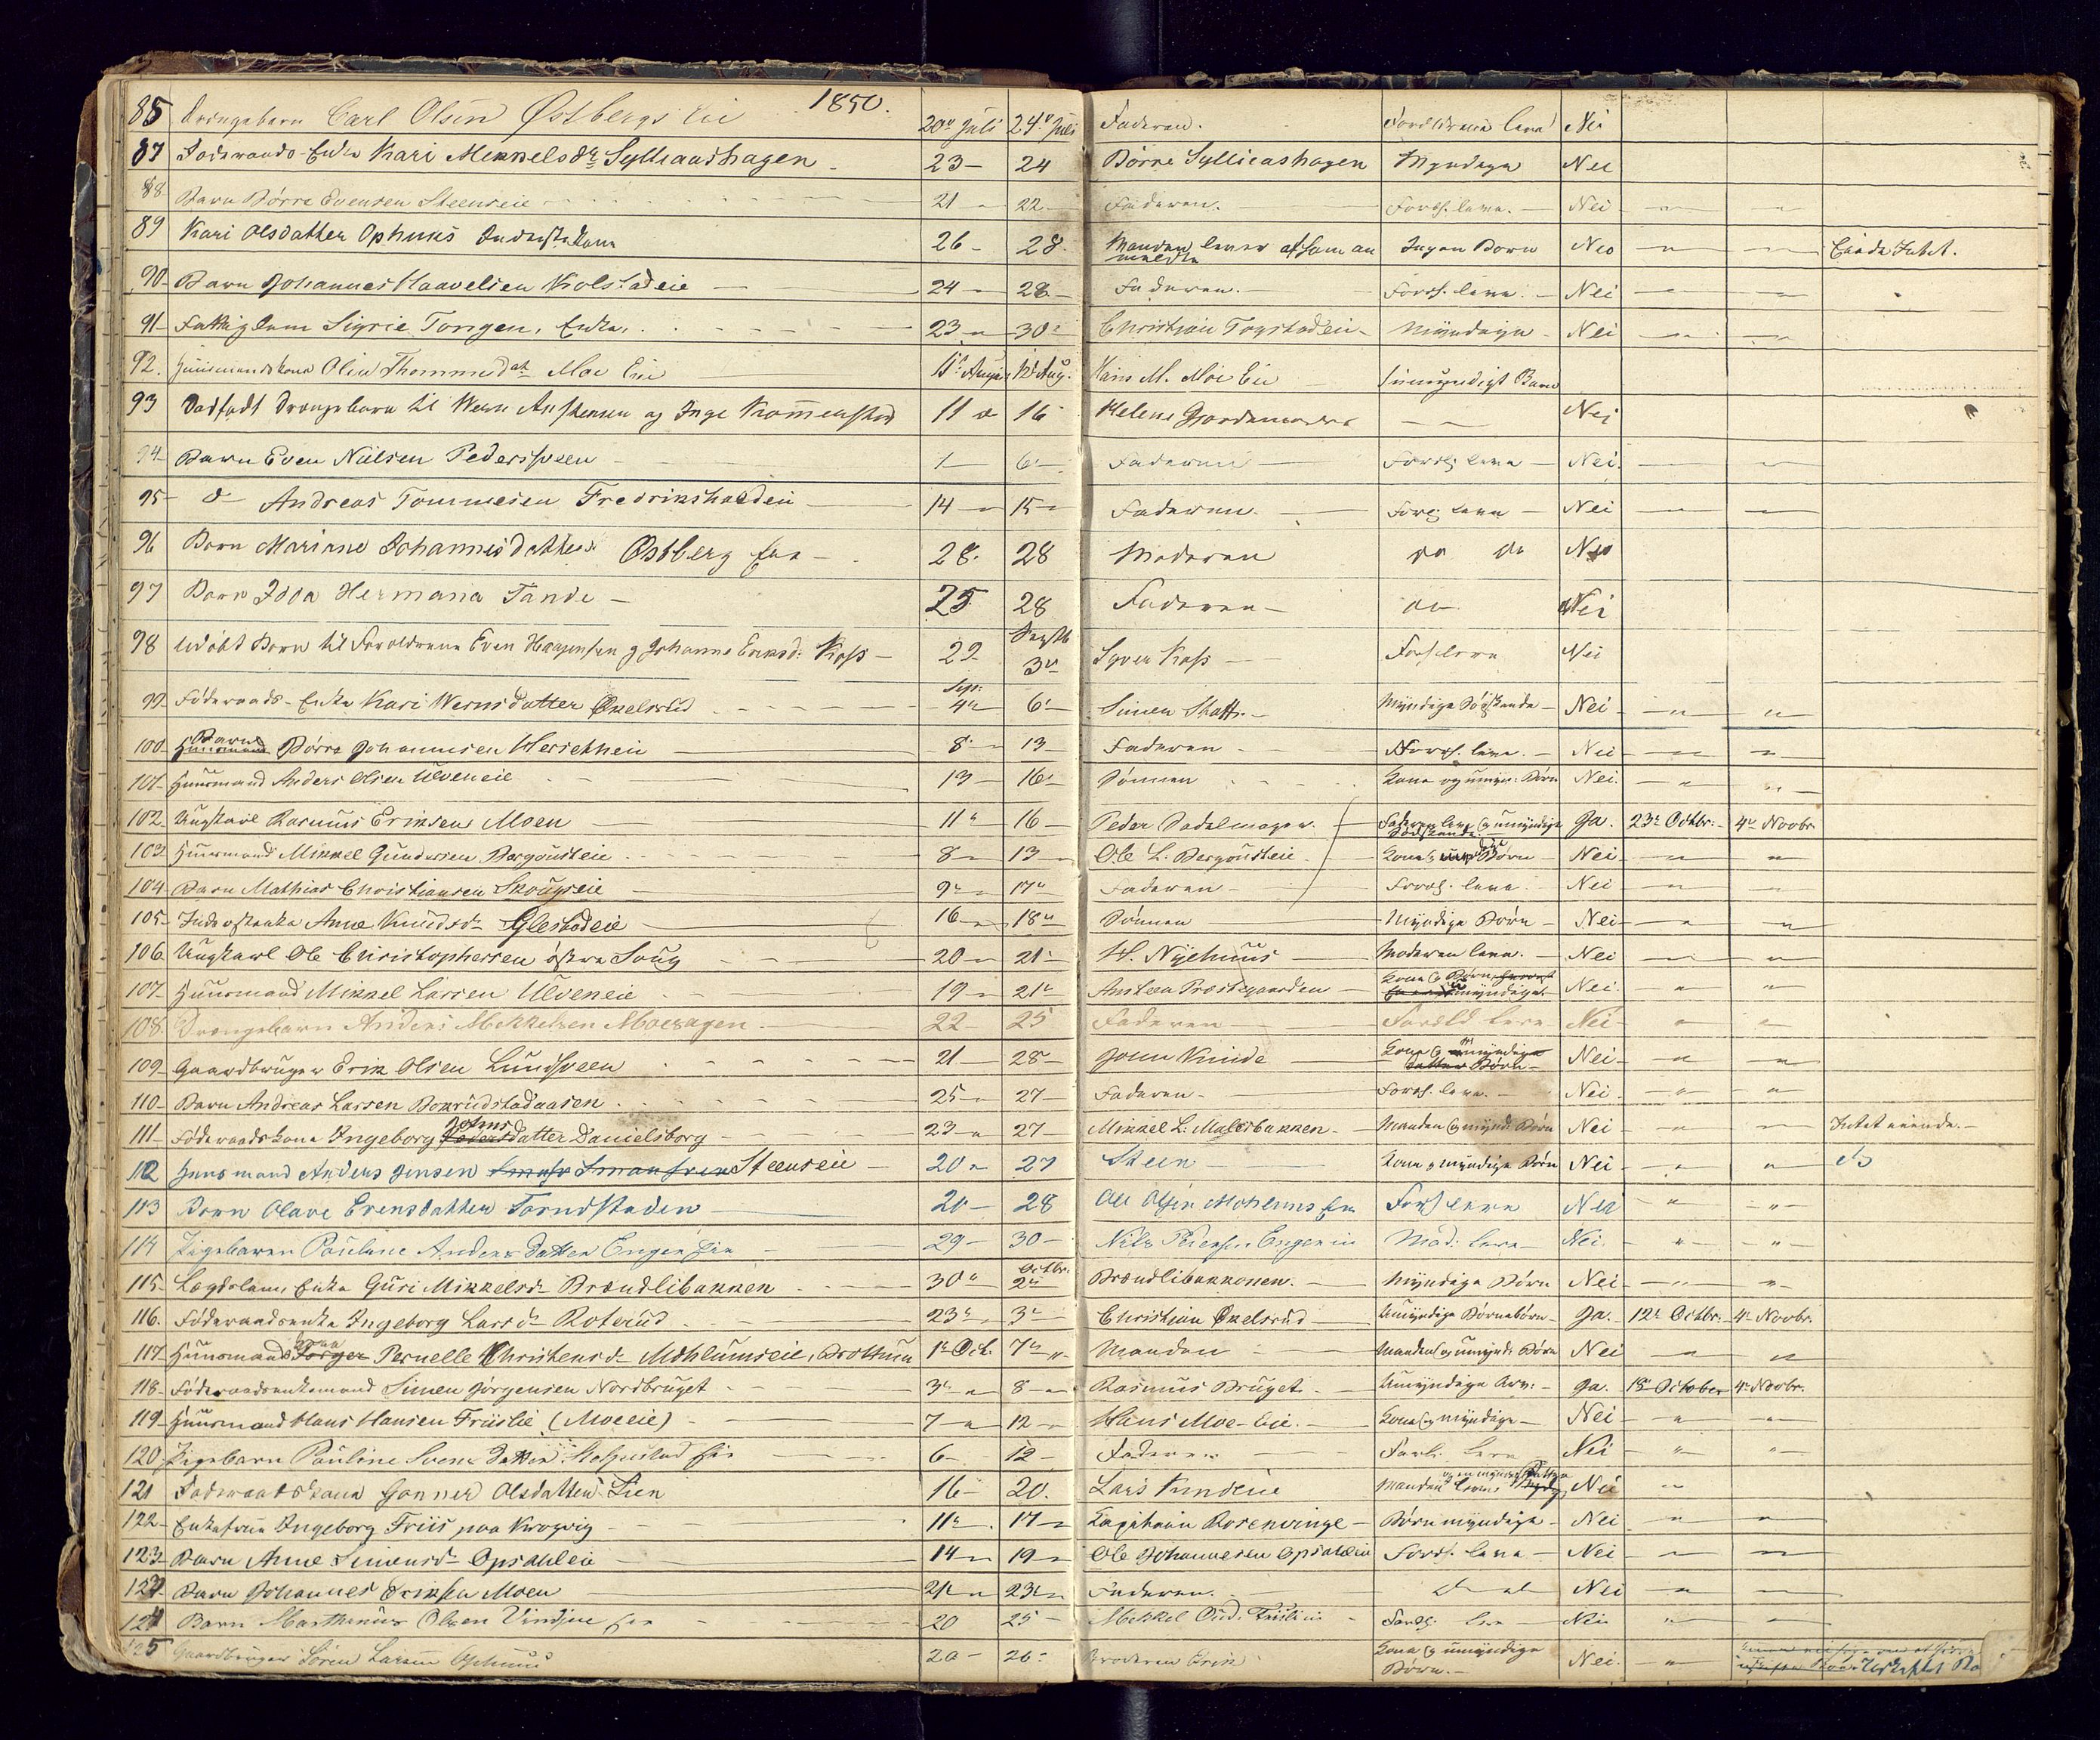 1850.
85 Drengebarn Carl Olsen Østbergs Eie 20de Juli 24de Juli Faderen. Forældrene leve Nei
87 Føderaads-Enke Kari Mikkelsdr Sylliaashagen 23 24 Børre Sylliaashagen Myndige Nei
88 Barn Børre Evensen Steenseie 21 22 Faderen. Foræl. leve. Nei
89 Kari Olsdatter Ophuus Inderstkone 26 28 Manden lever af Ingen Børn Nei Eiede Intet.
90 Barn Johannes Haavelsen Kolstadeie 24 28 Faderen. Foræl. leve. Nei
91 Fattiglem Sigrie Tongen, Enke. 23 30 Christian Togstadeie Myndige Nei
92. Huusmandskone Oline Thommesdat Moe Eie 11te August 12te Aug. Hans M. Moe Eie 1 umyndigt Barn
93 Dødfødt Drengebarn til Wern Anstensen og Inge Krommenstad 11 16 Helene Gjordemoder Nei
94 Barn Even Nielsen Pederssveen 1 6 Faderen Foræl. leve Nei.
95 d Andreas Tommesen Fredrikshaldeie 14 15 Faderen. Foræl. leve Nei
96 Barn Mariane Johannesdatter Østberg Eie 28. 28 Moderen do do Nei
97 Barn Idda Hermana Tande 25 28 Faderen do Nei
98 Udøbt Barn til Forældrene Even Haagensen og Johanne Eriksd. Kass 29 Septb. 3 Syver Kass Foræl leve Nei
99 Føderaads-Enke Kari Wernsdatter Økelsrud Sep: 4 6 Simen Skatt. Myndige Sødskende Nei
100 Huusmand Barn Børre Johannesen Hersetheie 8 13 Faderen Foræl. leve. Nei
101 Huusmand Anders Olsen Ulveneie 13 16 Sønnen Kone og umyn: Børn Nei.
102 Ungkarl Rasmus Eriksen Moen 11 16 Peder Sadelmager. Faderen leve og umyndige Sødskende Ja. 23 Octbr. 4 Novbr.
103 Huusmand Mikkel Gundersen Bergousteie 8 13 Ole L. Bergousteie Kone og Børn Nei
104 Barn Mathias Christiansen Skougseie 9 17 Faderen Foræl. leve. Nei
105 Inderstenke Anne Knudsd Glestadeie 16 18 Sønnen Myndige Børn Nei
106 Ungkarl Ole Christophersen østre Soug 20 21 H. Nyehuus Moderen leve. Nei
107 Huusmand Mikkel Larsen Ulveneie 19 21 Ansteen Prestegaarden Kone og Børn umyndige. Nei
108. Drengebarn Anders Mikkelsen Moeshagen 22 25 Faderen Foræld leve Nei
109 Gaardbruger Erik Olsen Lundsveen 21 28 Joen Kinde Kone og umyndige Børn Nei
110 Barn Andreas Larsen Bokrudstadaasen 25 27 Faderen Foræl. leve. Nei
111 Føderaadskone Ingeborg Johns Pedersdatter Danielsborg 23 27 Mikkel L. Malerbakken Manden og mynd: Børn Nei Intet eiende.
112 Huusmand Anders Jensen Steenseie 20 27 Steen Kone og myndige Børn Nei do
113 Barn Olave Evensdatter Torudstaden 20 28 Ole Olsen Mohlums Eie Foræl leve Nei
114 Pigebarn Pauline Anders Datter Engen Eie 29 30 Nils Pedersen Engen Eie Mod: leve Nei.
115 Lægdslem, Enke Guri Mikkelsd Brændlibakken 30 Octbr. 2 Brændlibakkenen. Myndige Børn Nei
116. Føderaadsenke Ingeborg Larsd Roterud 23 3 Christian Økelsrud Umyndige Børnebørn Ja. 12 Octbr. 4 Novbr.
117 Huusmands kone Pernelle Christensd Mohlumseie, Brøttum 1 Oct. 7 Manden Manden og umynd: Børn Nei
118 Føderaadsenkemand Simen Jørgensen Nordbruget 3 8 Rasmus Bruget Umyndige Arv: Ja. 15 October 4 Novbr.
119 Huusmand Hans Hansen Friislie (Moeeie) 7 12 Hans Moe-Eie. Kone og myndige Nei
120 Pigebarn Pauline Svens Datter Eie 6 12 Faderen Foræl: leve Nei
121 Føderaadskone Gonner Olsdatter Lien 16 20. Lars Kindeie Manden lever og en myndig Datter Nei
122 Enkefrue Ingeborg Friis paa Krogvig 11 17 Kapitain Rosenvinge Børn myndige Nei
123 Barn Anne Simensd Opsaleie 14 19 Ole Johannesen Opsaleie Foræl. leve Nei
123 Barn Johannes Eriksen Moen 21 23 Faderen. d d Nei
124 Barn Marthinus Olsen Vindju Eie 20 25 Mikkel Friislie Foræl: leve Nei
125 Gaardbruger Sören Larsen Ophuus 20 26 Broderen Erik Kone og umyndige Børn. Nei.